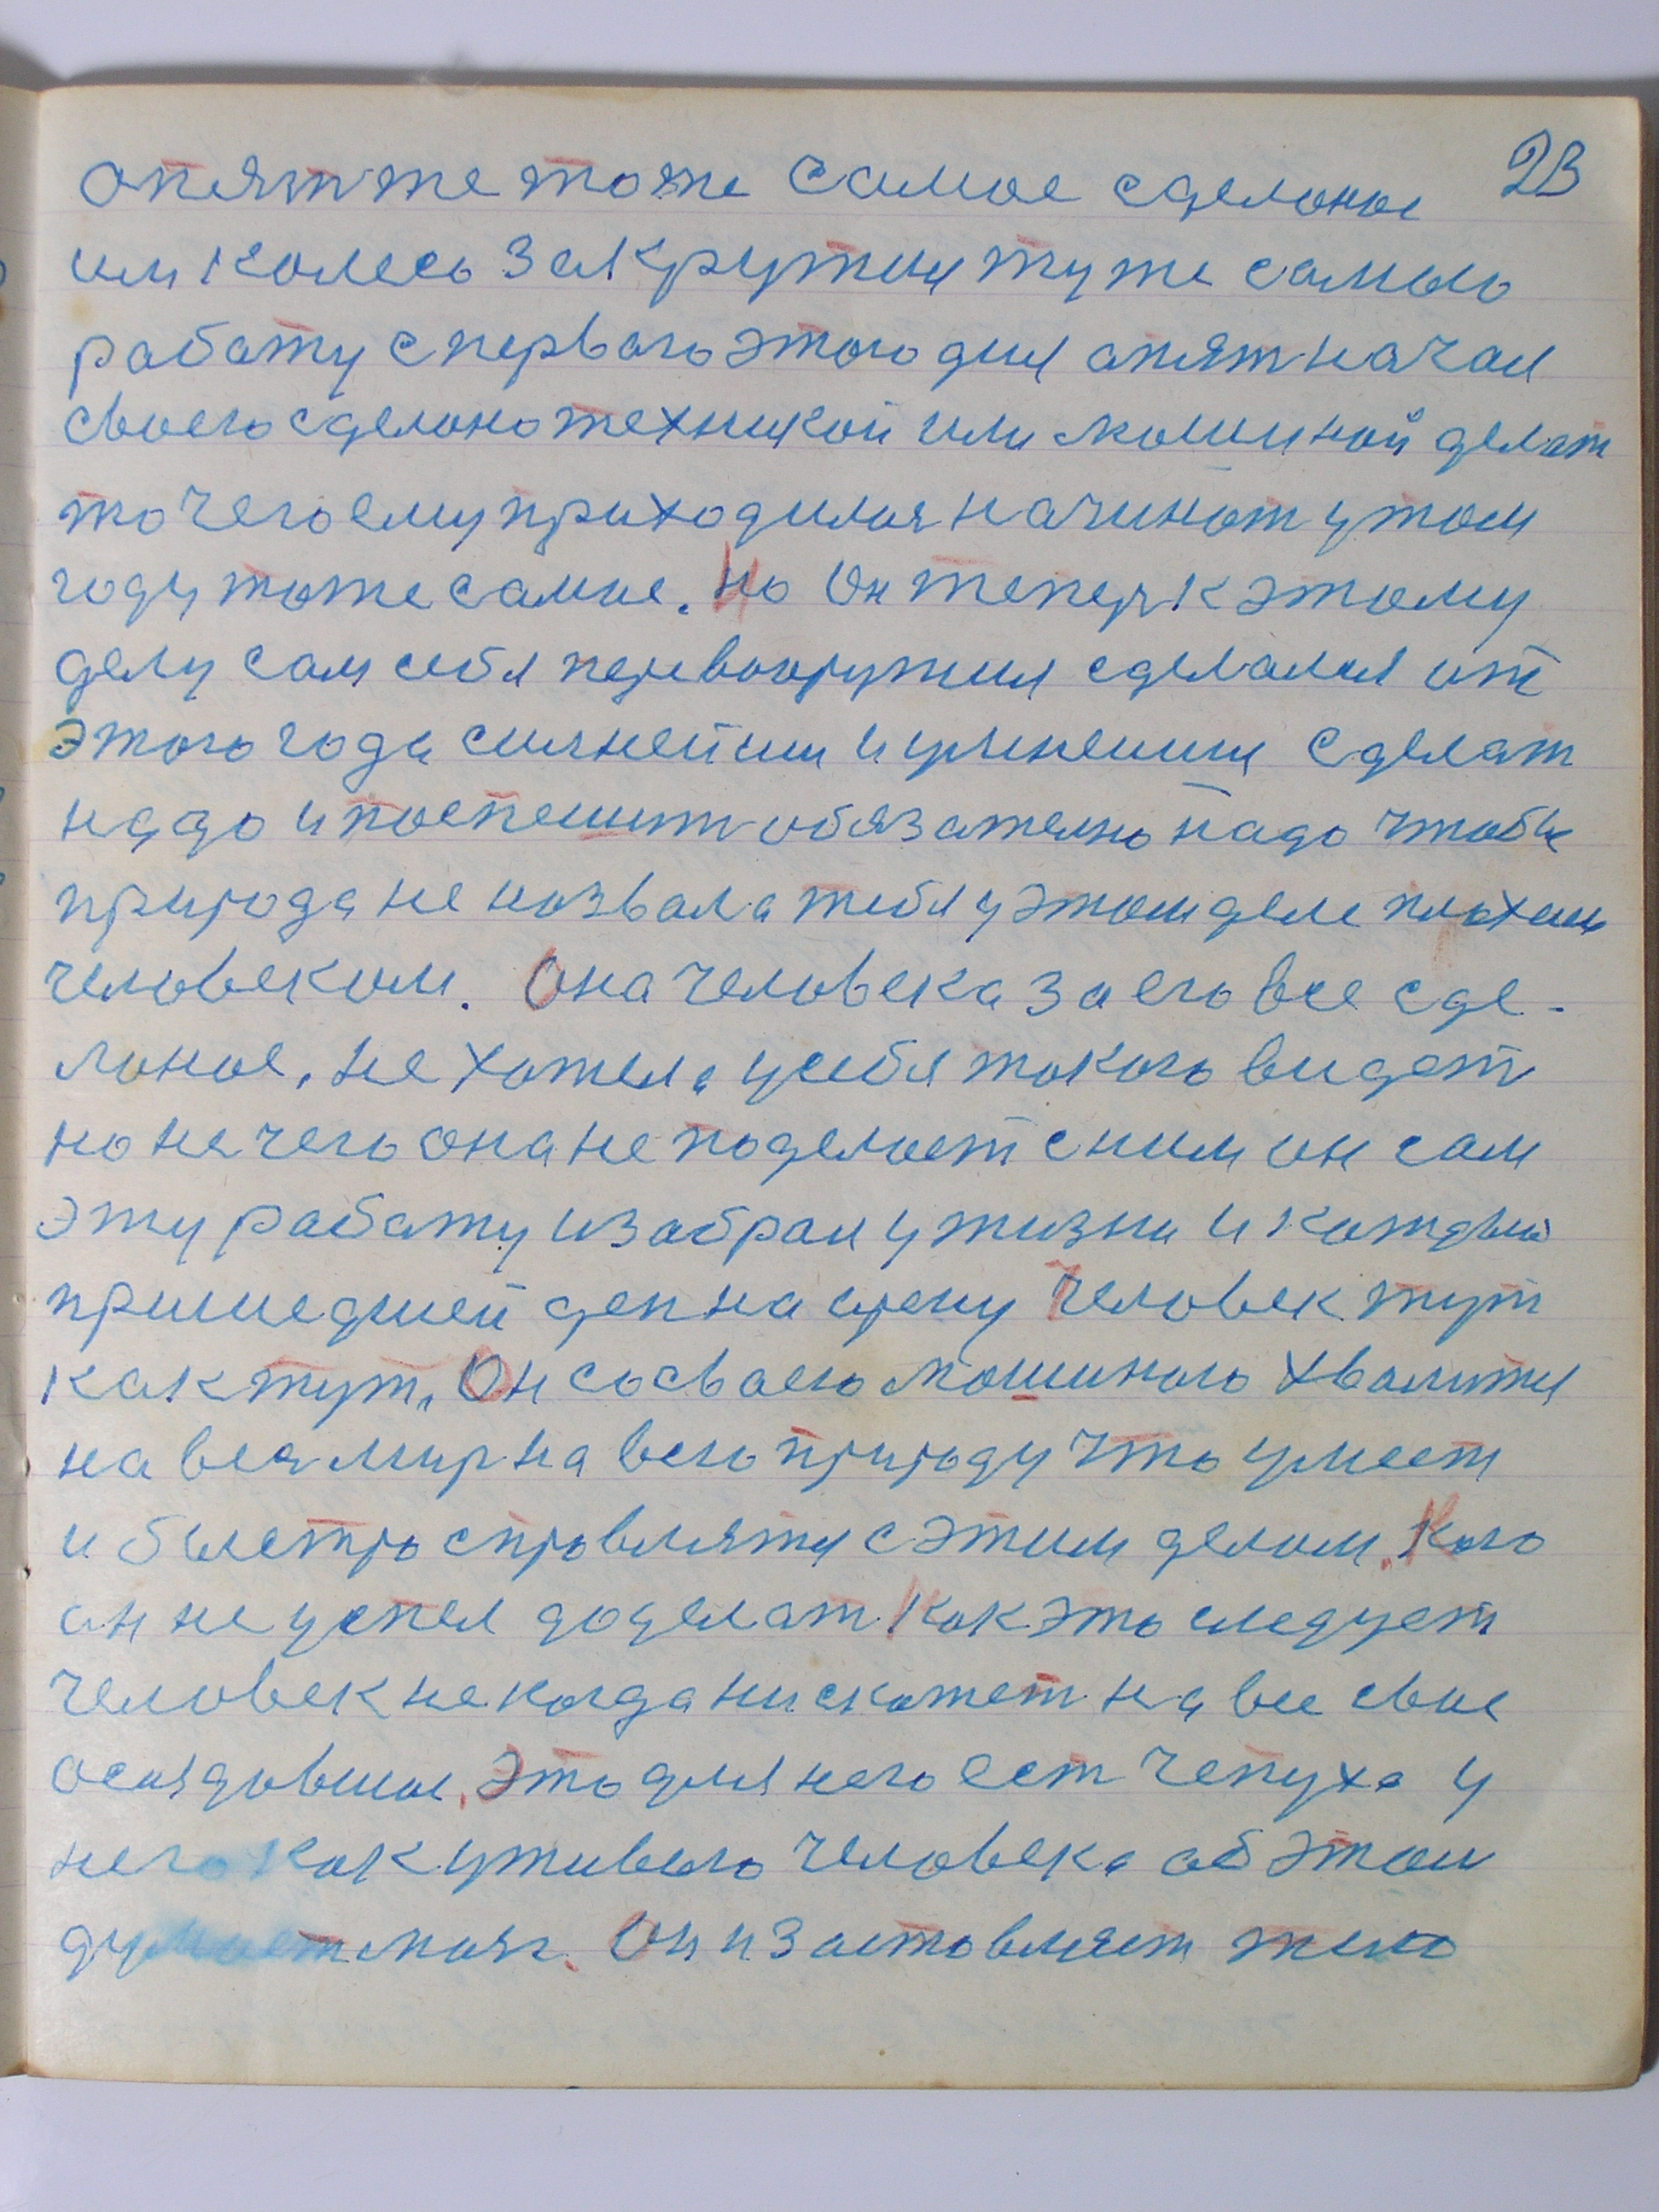 23
опят же тоже самое сделоное
им колесо закрутил ту же самою
работу с первого этого дня опят начал
своего сделоно техникой или машиной делат
то чего ему приходилося начинат у том
году тоже самое. Но Он теперь к этому
делу сам себя перевооружил сделался от
этого года силнейши и умнейши сделат
надо и поспешит обязателно надо чтобы
природа не назвала тебя у этом деле плохим
человеком. Она человека за его все сде-
лоное, не хотела у себя такого видет
но не чего она не поделает с ним он сам
эту работу изабрал у жизни и каждый
пришедшей ден на арену Человек тут
как тут, Он со своего машиного хвалится
на вся мир на всю природу что умеет
и быстро справлятся с этим делом. Кого
он не успел доделат Как это следует
Человек не когда ни скажет на все свое
оснядовшое. Это для него ест чепуха у
него как у живого человека об этом
думает мозг. Он и заставляет тело